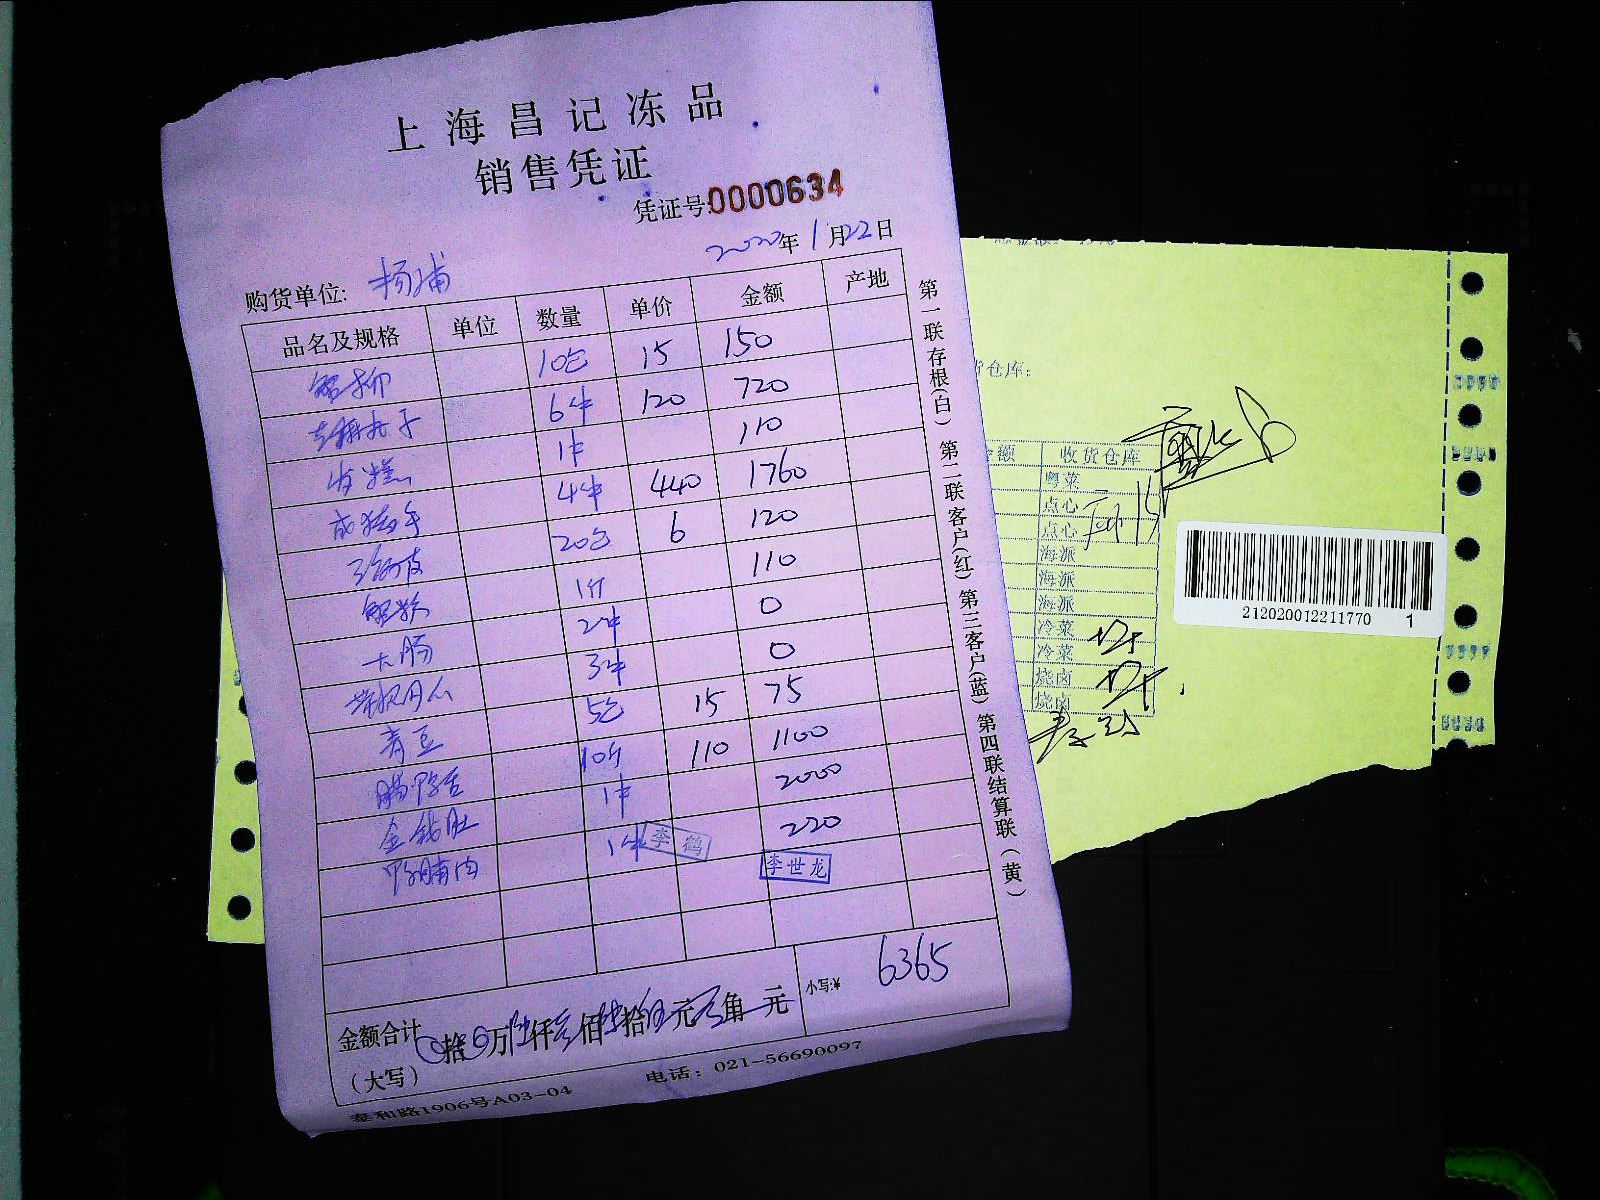 上海昌记冻品
销售凭证
凭证号:0000634
2020年1月22日
购货单位: 杨浦
品名及规格 单位 数量 单价 金额 产地
蟹柳 10包 15 150
6件 120 720
发糕 1件 110
4件 440 1760
20包 6 120
110
大肠 2件 0
3件 0
青豆 5包 15 75
腊鸭舌 10斤 110 1100
金钱肚 1件 2000
鸭脯肉 1件 220
李鹤
李世龙
金额合计 拾 万陆仟叁佰陆拾伍元 角 元
(大写)
小写:¥ 6365
泰和路1906号A03-04 电话：021-56690097
第一联存根(白) 第二联客户(红) 第三客户(蓝) 第四联结算联(黄)
货仓库：
金额 收货仓库
粤菜
点心
点心
海派
海派
海派
冷菜
冷菜
烧卤
烧卤
212020012211770 1